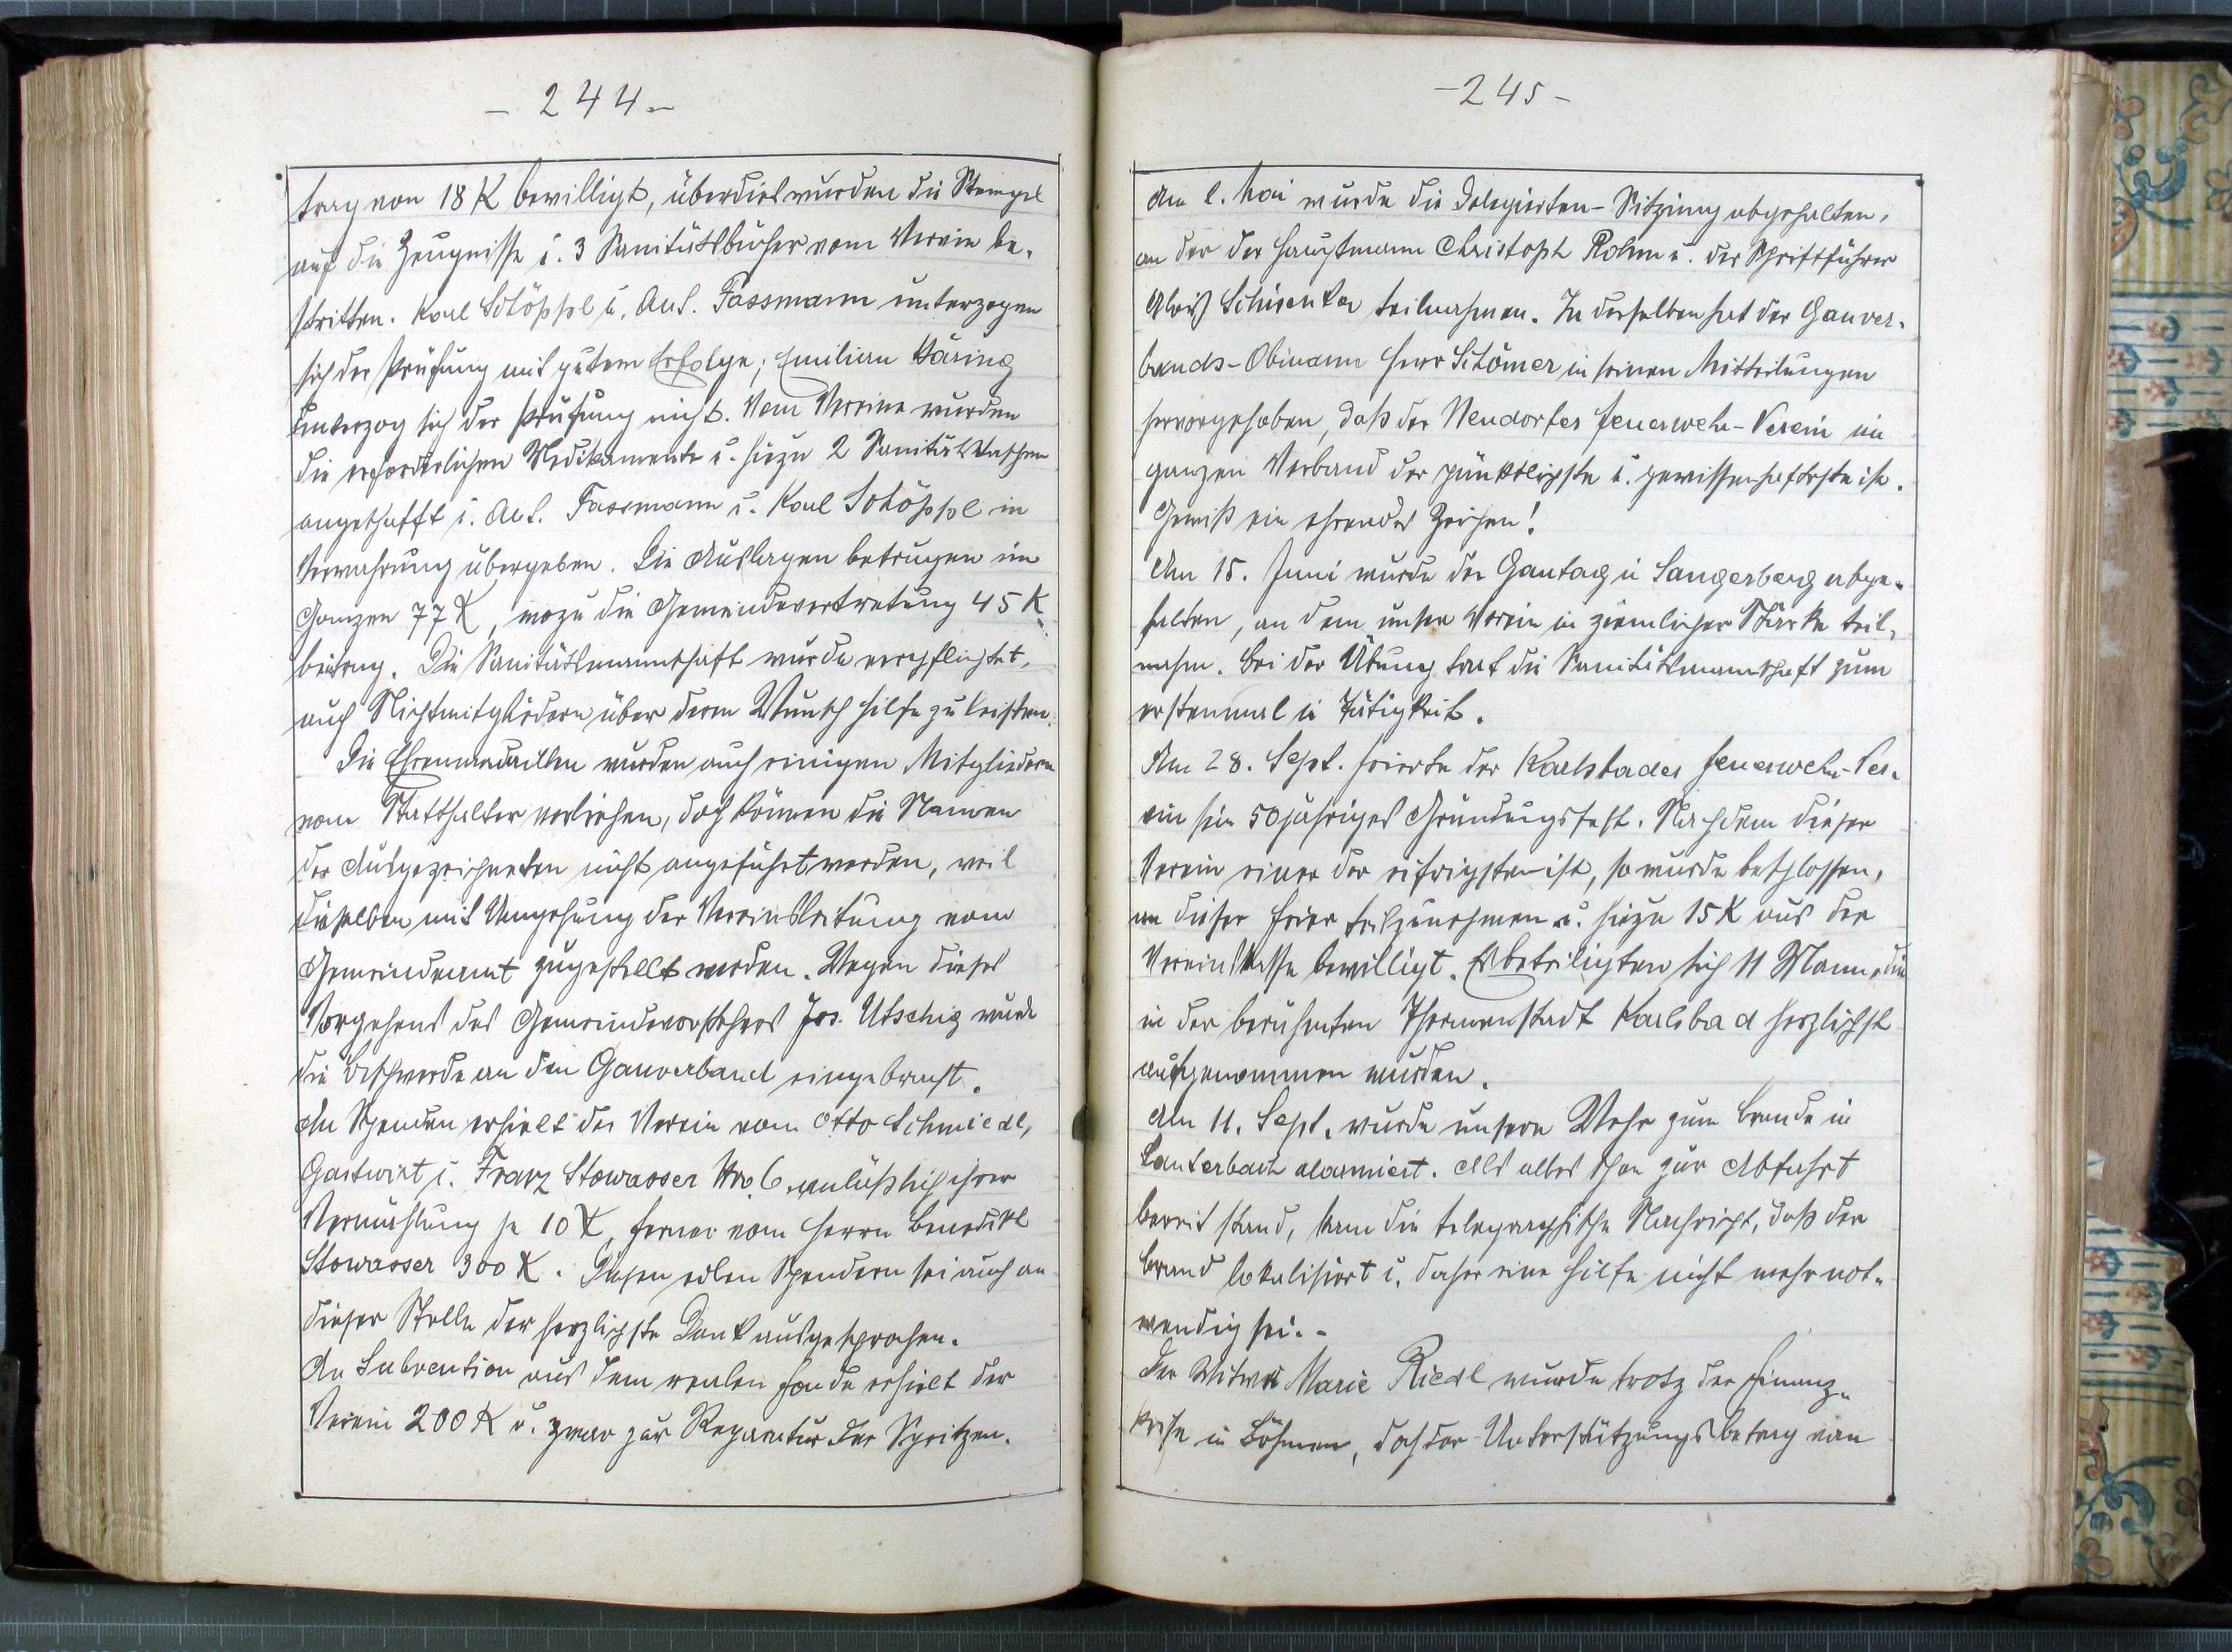 - 244 -
trag von 18 K bewilligt, überdies wurden die Stempel
auf die Zeugnisse u. 3 Sanitätsbücher vom Verein be-
stritten. Karl Schöppl u. Ant. Fassmann unterzogen
sich der Prüfung mit gutem Erfolge; Emilian Häring
unterzog sich der Prüfung nicht. Vom Vereine wurden
die erforderlichen Medikamente u. hiezu 2 Sanitätstaschen
angeschafft u. Ant. Fassmann u. Karl Schöppl in
Verwahrung übergeben. Die Auslagen betrugen im
Ganzen 77 K, wozu die Gemeindevertretung 45 K
beitrug. Die Sanitätsmannschaft wurde verpflichtet,
auch Nichtmitgliedern über deren Wunsch Hilfe zu leisten.
Die Ehrenmedaillen wurden auch einigen Mitgliedern
vom Statthalter verliehen, doch können die Namen
der Ausgezeichneten nicht angeführt werden, weil
dieselben mit Umgehung der Vereinsleitung vom
Gemeindeamt zugestellt wurden. Wegen dieses
Vorgehens des Gemeindevorstehers Jos. Utschig wurde
die Beschwerde an den Gauverband eingebracht.
An Spenden erhielt der Verein vom Otto Schmiedl,
Gastwirt u. Franz Stowasser Nro 6 anläßlich ihrer
Vermählung je 10 K, ferner vom Herrn Benedikt
Stowasser 300 K. Diesen edlen Spendern sei auch an
dieser Stelle der herzlichste Dank ausgesprochen.
An Subvention aus dem realen Fonde erhielt der
Verein 200 K u. zwar zur Reparatur der Spritzen.
- 245 -
Am 1. Mai wurde die Delegierten-Sitzung abgehalten,
an der der Hauptmann Christoph Rohm u. der Schriftführer
Alois teilnahmen. In derselben hat der Gauver-
bands-Obmann Herr Schömer in seinen Mitteilungen
hervorgehoben, daß der Neudorfer Feuerwehr-Verein im
ganzen Verband der pünktlichste u. gewissenhafteste ist.
Gewiß ein ehrendes Zeichen!
Am 15. Juni wurde der Gautag in Sangerberg abge-
halten, an dem unser Verein in ziemlicher Stärke teil-
nahm. Bei der Übung trat die Sanitätsmannschaft zum
erstenmal in Tätigkeit.
Am 28. Sept. feierte der Karlsbader Feuerwehr-Ver-
ein sein 50 jähriges Gründungsfest. Nachdem dieser
Verein einer der eifrigsten ist, so wurde beschlossen,
an dieser Feier teilzunehmen u. hiezu 15 K aus der
Vereinskasse bewilligt. Es beteiligten sich 11 Mann, die
in der berühmten Thermenstadt Karlsbad herzlichst
aufgenommen wurden.
Am 11. Sept. wurde unsere Wehr zum Brande in
Lauterbach alarmiert. Als alles schon zur Abfahrt
bereit stand, kam die telegraphische Nachricht, daß der
Brand lokalisiert u. daher eine Hilfe nicht mehr not-
wendig sei. -
Der Witwe Marie Riedl wurde trotz der Finanz-
krise in Böhmen, doch der Unterstützungsbetrag von